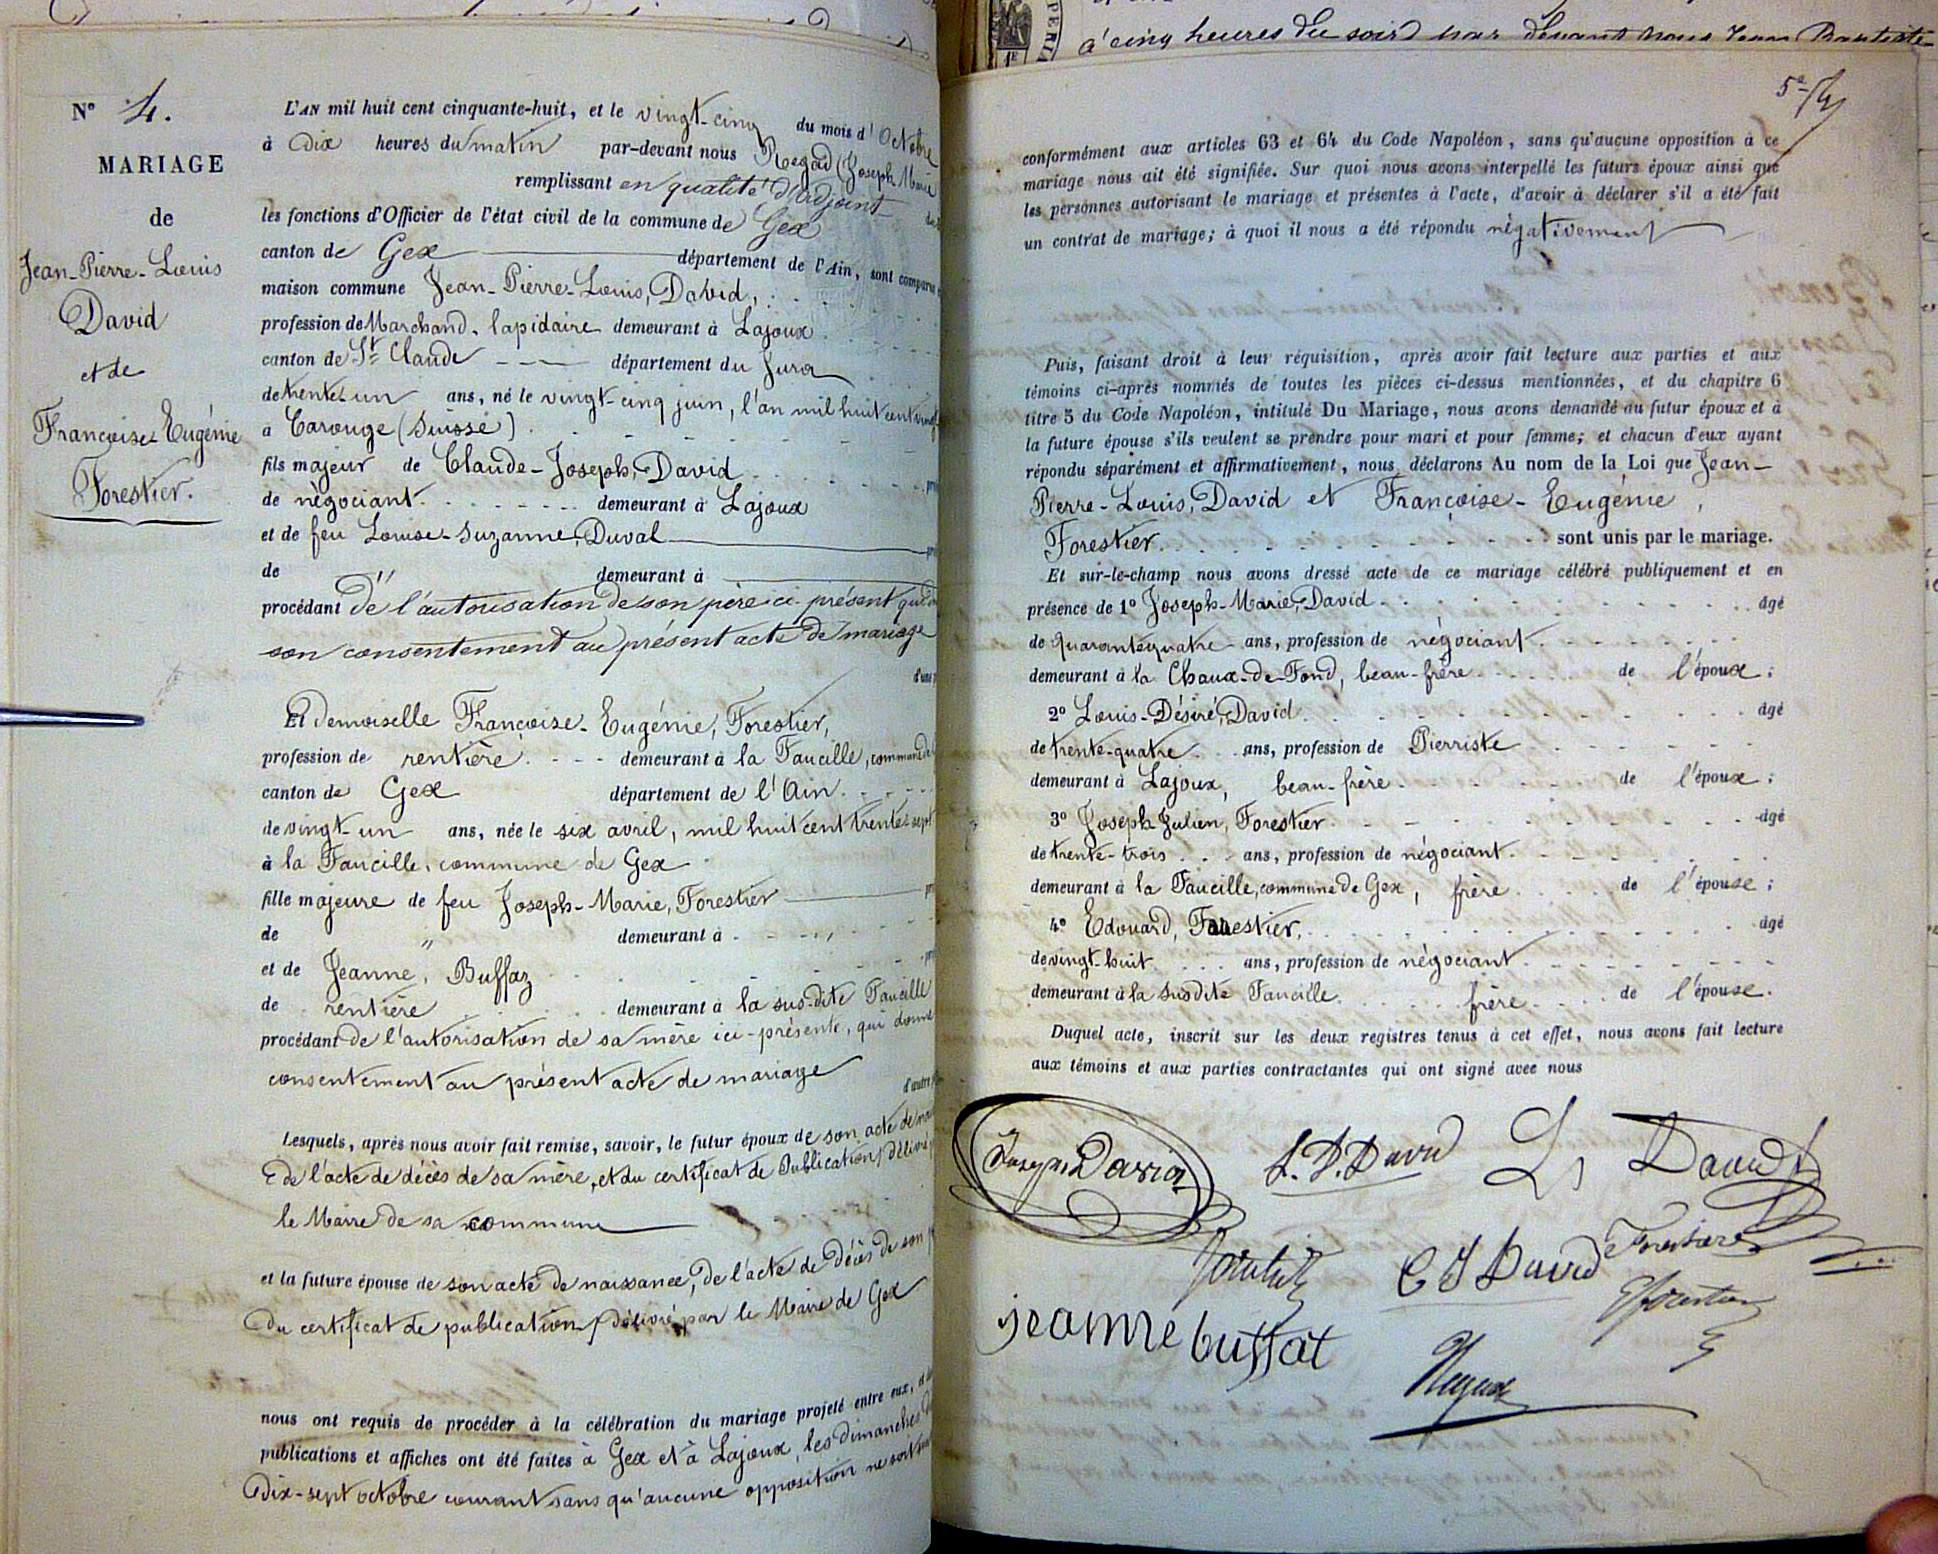 à cinq heures du soir par devant nous Jean Baptiste
N° 4.
MARIAGE
de
Jean-Pierre-Louis
David
et de
Françoise Eugénie
Forestier.
L'AN mil huit cent cinquante-huit, et le vingt-cinq du mois d'Octobre
à Dix heures du matin par-devant nous Regad (Joseph Marie
remplissant en qualité d'adjoint
les fonctions d'Officier de l'état civil de la commune de Gex
canton de Gex département de l'Ain, sont comparus
maison commune Jean-Pierre-Louis, David,
profession de Marchand lapidaire demeurant à Lajoux
canton de St Claude département du Jura
de trente-un ans, né le vingt-cinq juin, l'an mil huit cent vingt
à Carouge (Suisse)
fils majeur de Claude-Joseph, David
de négociant demeurant à Lajoux
et de feu Louise-Suzanne, Duval
de demeurant à
procédant de l'autorisation de son père ci-présent qui
son consentement au présent acte de mariage
d'une
Et demoiselle Françoise-Eugénie, Forestier,
profession de rentière demeurant à la Faucille, commune de
canton de Gex département de l'Ain
de vingt-un ans, née le six avril, mil huit cent trente sept
à la Faucille, commune de Gex
fille majeure de feu Joseph-Marie, Forestier
de " demeurant à
et de Jeanne, Buffaz
de rentière demeurant à la sus-dite Faucille
procédant de l'autorisation de sa mère ici-présente, qui donne
consentement au présent acte de mariage
d'autre
Lesquels, après nous avoir fait remise, savoir, le futur époux de son acte de
de l'acte de décès de sa mère, et du certificat de Publication délivré
le Maire de sa commune
et la future épouse de son acte de naissance, de l'acte de décès de son
du certificat de publication délivré par le Maire de Gex
nous ont requis de procéder à la célébration du mariage projeté entre eux,
publications et affiches ont été faites à Gex et à Lajoux, les dimanches
Dix-sept octobre courant sans qu'aucune opposition ne soit
conformément aux articles 63 et 64 du Code Napoléon, sans qu'aucune opposition à ce
mariage nous ait été signifiée. Sur quoi nous avons interpellé les futurs époux ainsi que
les personnes autorisant le mariage et présentes à l'acte, d'avoir à déclarer s'il a été fait
un contrat de mariage; à quoi il nous a été répondu négativement
Puis, faisant droit à leur réquisition, après avoir fait lecture aux parties et aux
témoins ci-après nommés de toutes les pièces ci-dessus mentionnées, et du chapitre 6
titre 5 du Code Napoléon, intitulé Du Mariage, nous avons demandé au futur époux et à
la future épouse s'ils veulent se prendre pour mari et pour femme; et chacun d'eux ayant
répondu séparément et affirmativement, nous déclarons Au nom de la Loi que Jean-
Pierre-Louis, David et Françoise-Eugénie,
Forestier. sont unis par le mariage.
Et sur-le-champ nous avons dressé acte de ce mariage célébré publiquement et en
présence de 1° Joseph-Marie, David âgé
de quarante quatre ans, profession de négociant
demeurant à la Chaux-de-Fond, beau-frère de l'époux;
2° Louis-Désiré, David âgé
de trente-quatre ans, profession de Pierriste
demeurant à Lajoux, beau-frère de l'époux;
3° Joseph Julien, Forestier âgé
de trente-trois ans, profession de négociant
demeurant à la Faucille, commune de Gex, frère de l'épouse;
4° Edouard, Forestier, âgé
de vingt-huit ans, profession de négociant
demeurant à la susdite Faucille frère de l'épouse.
Duquel acte, inscrit sur les deux registres tenus à cet effet, nous avons fait lecture
aux témoins et aux parties contractantes qui ont signé avec nous
Joseph David L. D. David Ls David
Forestier
C J David
EForestier
jeanne buffat
Regad